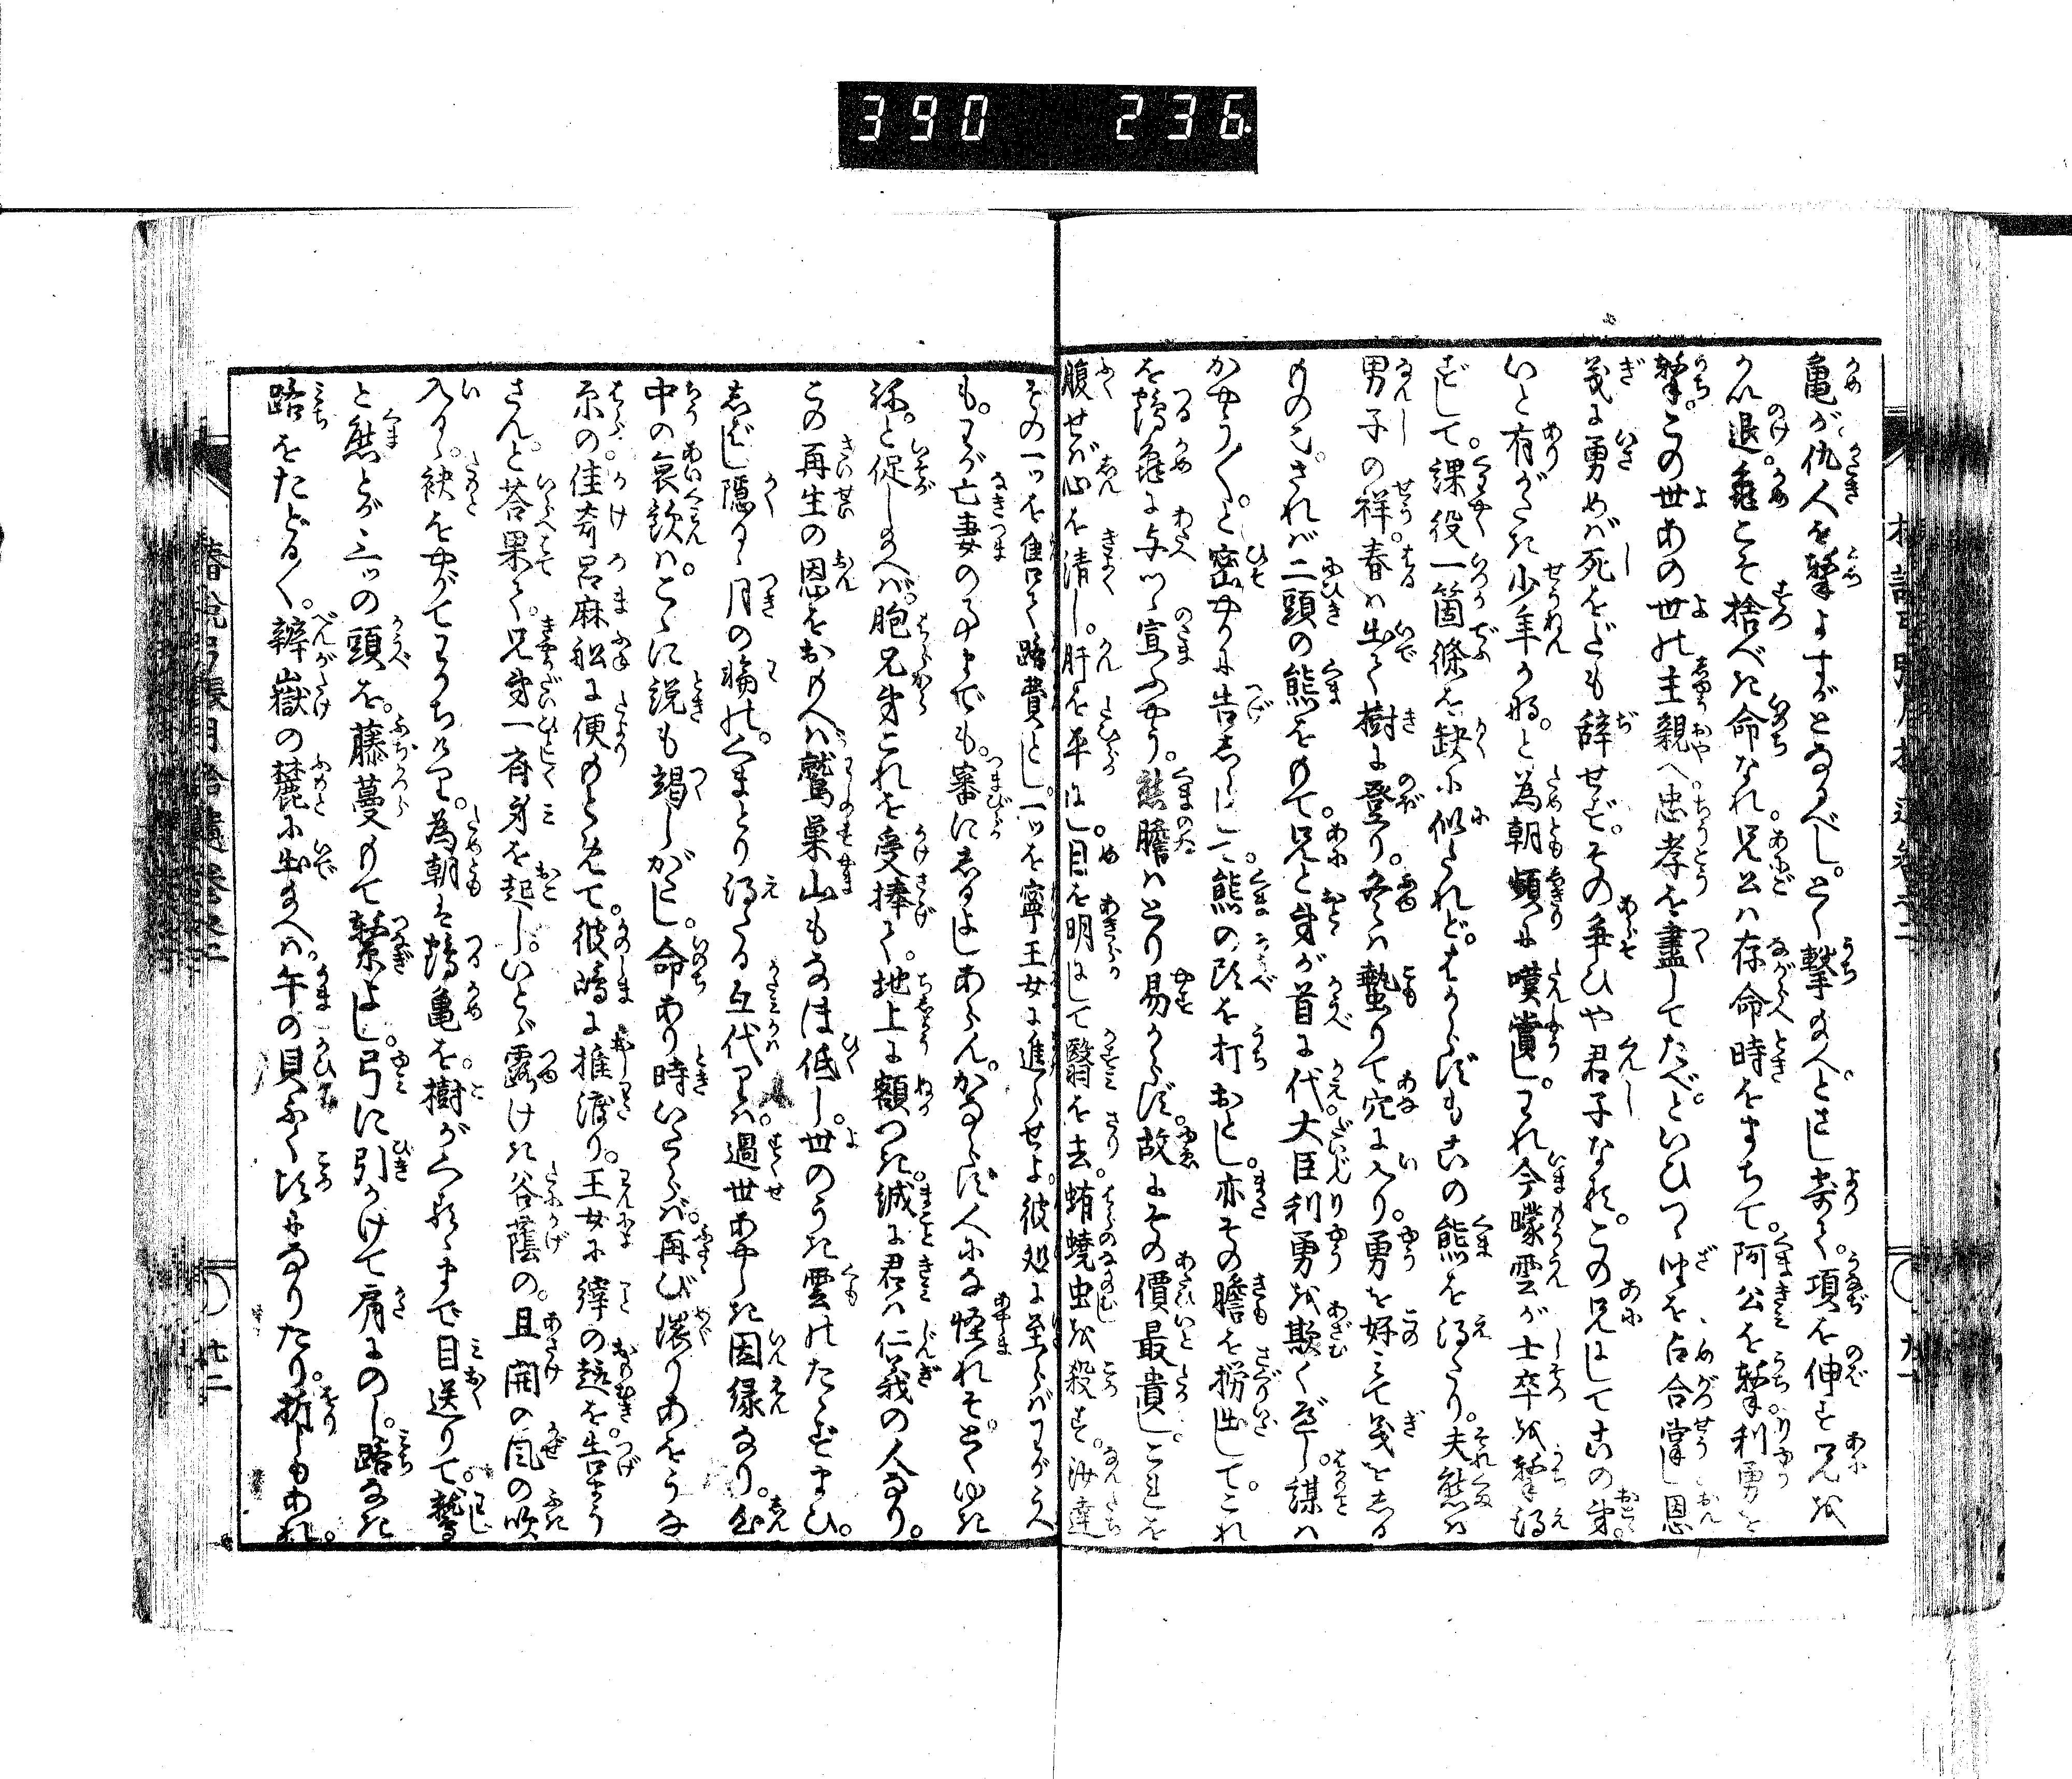 390 236
亀が仇人を撃よすがとなるべし。とく撃給へ。とさし寄て。項を伸す。兄は
かい退。亀こそ捨べき命なれ。兄公は存命時をまちて。阿公を撃。利勇を
撃。この世あの世の主親へ。忠孝を盡してたべ。といひつゝ坐を占合掌し。恩
義に勇めば死をだも辞せず。その争ひや君子なる。この兄にしてこの弟。
いと有がたき少年かな。と為朝頻に嘆賞し。われ今曚雲が士卒を撃得
ずして。課役一箇條を缺に似たれど。はからずもこの熊を得たり。夫熊は
男子の祥。春は出て樹に登り。冬は蟄りて穴に入り。勇を好みて義をしる
ものゝ。されば二頭の熊をもて。兄と弟が首に代。大臣利勇を欺くべし。謀は
かやう〳〵。と密やかに告しらし。熊の頭を打おとし。亦その膽を撈出して。これ
を鶴亀に与へ。宣ふやう。熊膽はとり易からず。故にその價最貴し。これを
腹せば心を清し。肝を平にし。目を明にして翳を去。蛕蟯虫を殺す。汝達
その一ッを售て路費とし。一ッを寧王女に進らせよ。彼処に至らばわがうへ
も。わが亡妻の事までも。審にしるよしあらん。かならず人にな怪れそ。とくゆき
ね。と促し給へば。胞兄弟これを受捧て。地上に額つき。誠に君は仁義の人なり。
この再生の恩をおもへば。鷲巣山もなほ低し。世のうき雲のたゝずまひ。
しばし隠るゝ月の輪の。くまとり得たる互代りは。過世あやしき因縁なり。心
中の哀歓は。こゝに説も竭しがたし。命あり時いたらば。再び環りあをうな
原の佳奇呂麻舩に便もとめて。彼嶋に推渡り。王女に縡の趣を。告まう
さんと荅果て。兄弟一斉身を起し。いとゞ露けき谷蔭の。且開の風の吹
入るゝ。袂をやがてわかちけり。為朝は鶴亀を。樹がくるゝまで目送りて。鷲
と熊とが三ッの頭を。藤蔓もて繋よし。弓に引かけて肩にのし。路なき
路をたどる〳〵。辨嶽の麓に出給へは。午の貝ふく比になりたり。折しもあれ。
椿説弓張月拾遺巻之二
廿二